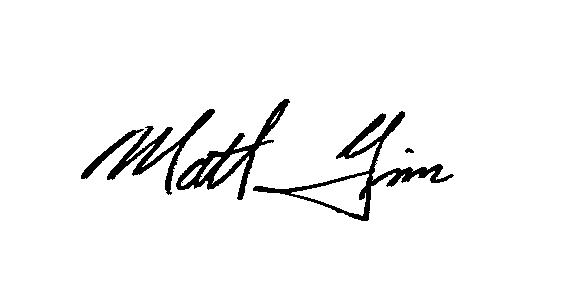 Matt Gim